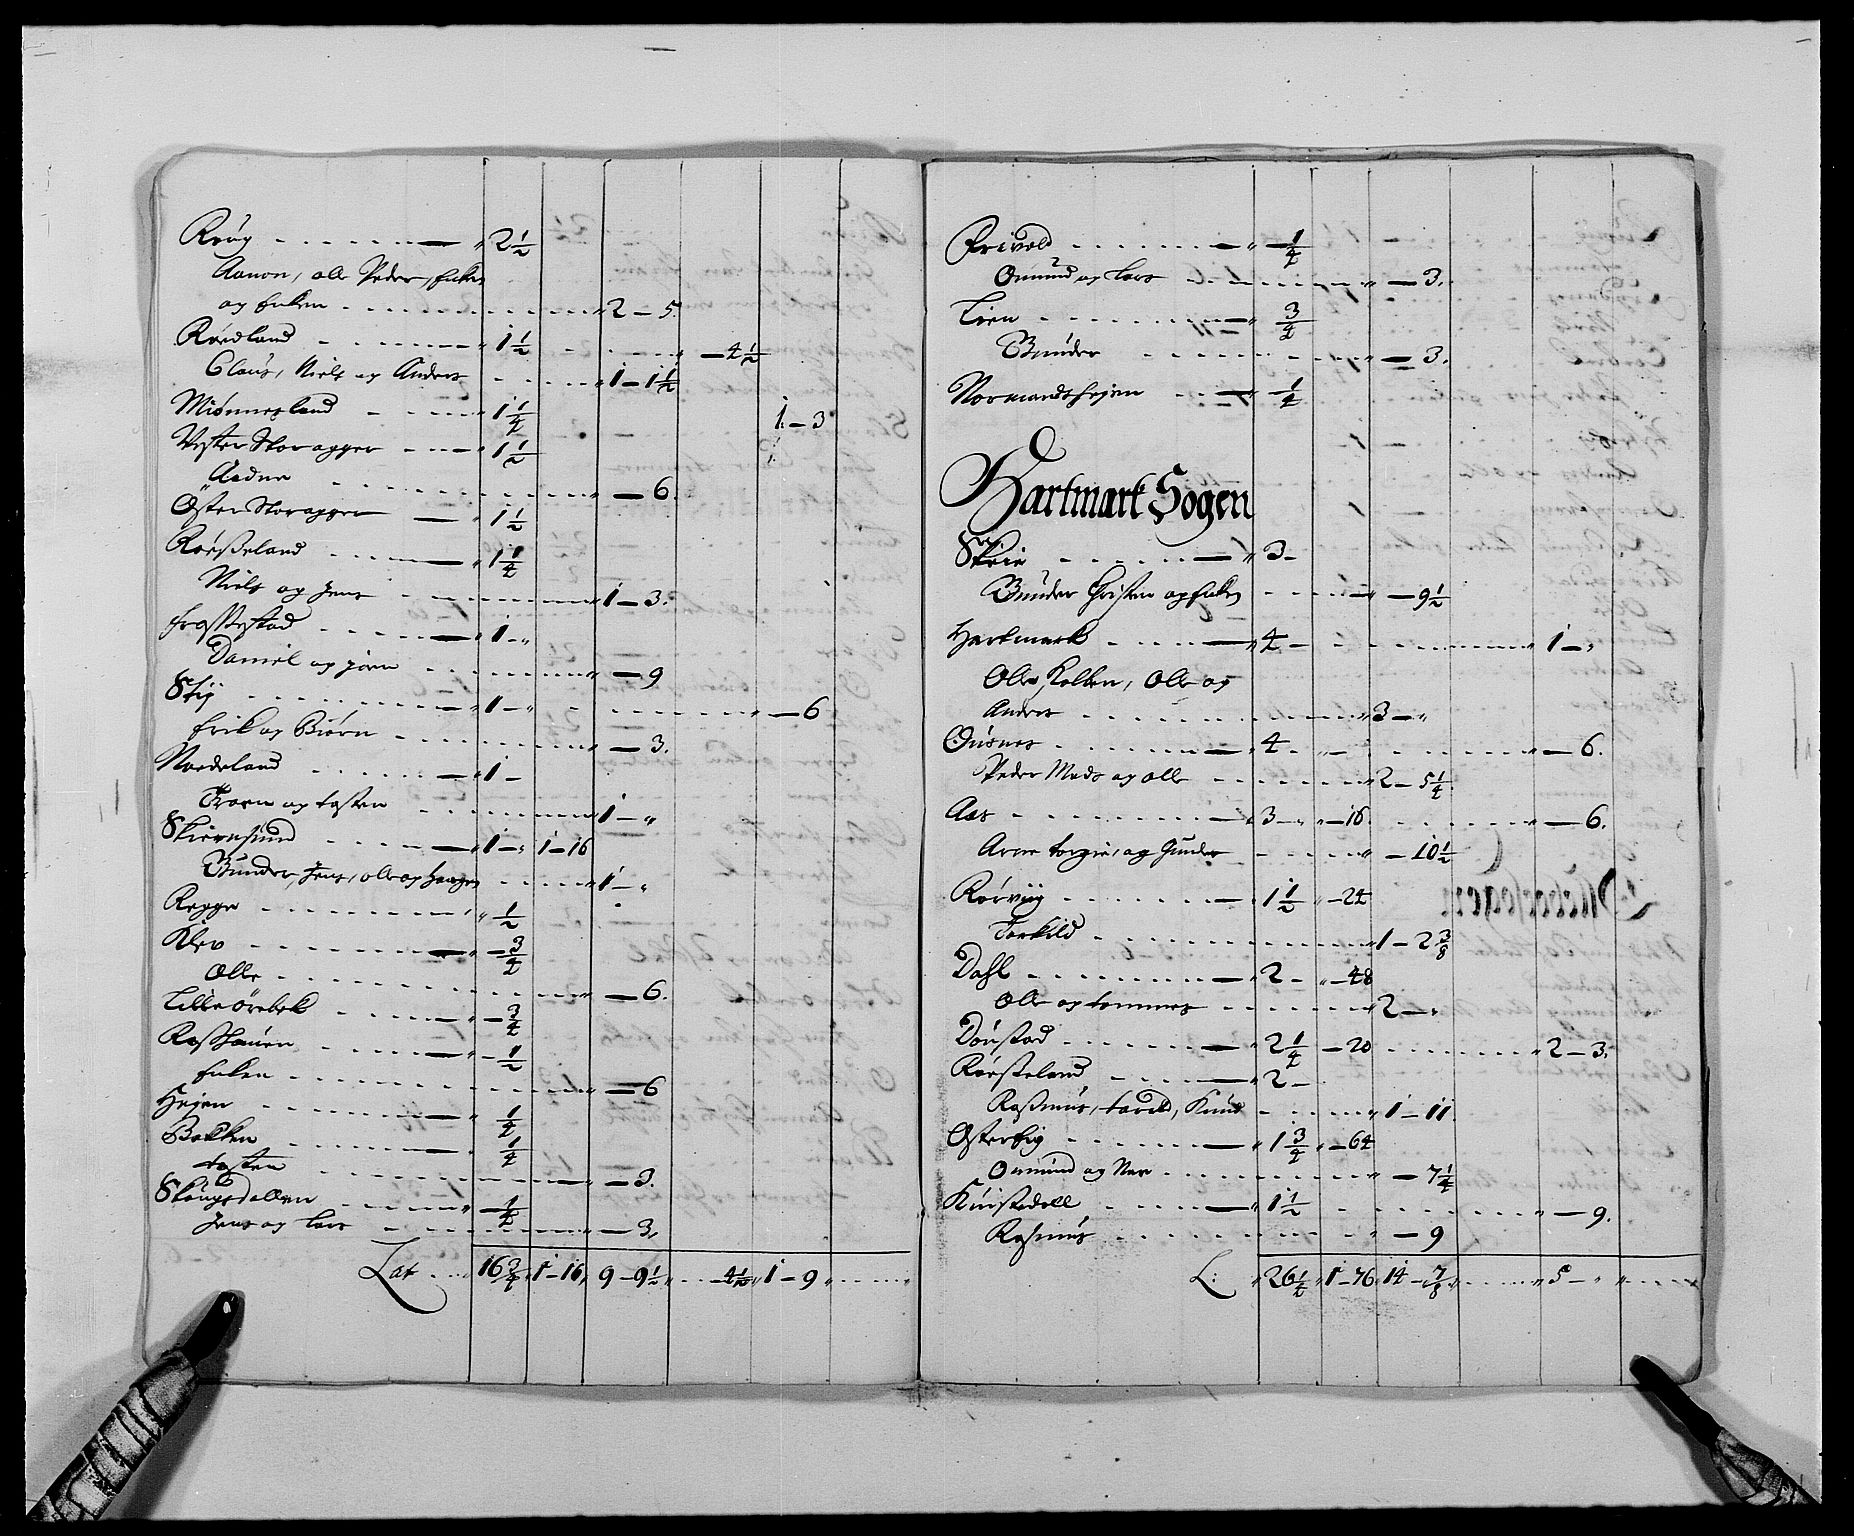 Røüg - - - " 2 1/2
Aanon, olle Peder, Enken
og Enken - - - " 2 - 5
Rørdland - - - " 1 1/2 - - - " - 4 1/2
Claus, Niels og Anders - - - " 1 - 1 1/2
Miønnesland - - - " 1 1/4 1. - 3
Vester Storagger - - - " 1 1/2
Aadne - - - " - 6.
Øster Storagger - " 1 1/2
Rørsseland - - - " 1 1/4
Niels og Jens - - - " 1 - 3.
Frøssestad - - - " 1 - "
Daniel og Jørn - - - " - 9
Stig - - - " 1 - " - - - " - 6
Erik og Biørn - - - " - 3.
Nordeland - - - " 1 -
Taarn og tosten - - - " 1 - "
Skiernsund - - - " 1 - " 1 - 16
Gunder, Jens, olle og Haagen - - - " 1 - "
Regge - - - " 1/2
Klev - - - " - 3/4
Olle - - - " - 6.
Lille Ørebek - - - " - 3/4
Rosshauen - - - " - 1/2
Enken - - - " - 6
Heien - - - " 1/4
Bakken - - - " 1/4
tosten - - - " - 3.
Skougsdallen - - - " 1/4
Jens og Lars - - - " - 3.
Lat - - " 16 3/4 " 1 - 16, 9 - 9 1/2 " - - - 4 1/2 " 1 - 9 " - - - "
Frivold - - - " 1/4
Omund og Lars - - - " - 3.
Lien - - - " 3/4
Gunder - - - " - 3.
Normandsheien - - " 1/4
Hartmark Sogen
Skeie - - - " 3 -
Gunder Christen og Enken - - - " - 9 1/2
Hartmark - - - " 4 - - - - " 1 - "
Olle, Kolben, Olle og
Anders - - - " 3 - "
Ousnes - - - " 4 - " - - - - " - 6.
Peder Mads og olle - - - " 2 - 5 1/4
Aas - - - " 3 - " " - 16 - - - " - 6.
Arne torgie, og Gunder - - - " - 10 1/2
Rørviig - - - " 1 1/2 " - 24
Torkild - - - " 1 - 2 3/8
Dahl - - - " 2 - " - 48
Olle og tommes - - - " 2 - "
Dønstad - - - " 2 1/4 - 20 - - - " 2 - 3.
Rørsseland - - - " 2 -
Rassmus, tarald, Knud - - - " 1 - 11.
Østerhig - - - " 1 3/4 " - 64
Omund og - - - " - 7 1/4
Knistedall - - - " 1 1/2 - - - " - 9.
Rasmus - - - " - 9
L: " 26 1/4 " 1 - 76 " 14 - 7/8 " - - - " 5 - " " - - -